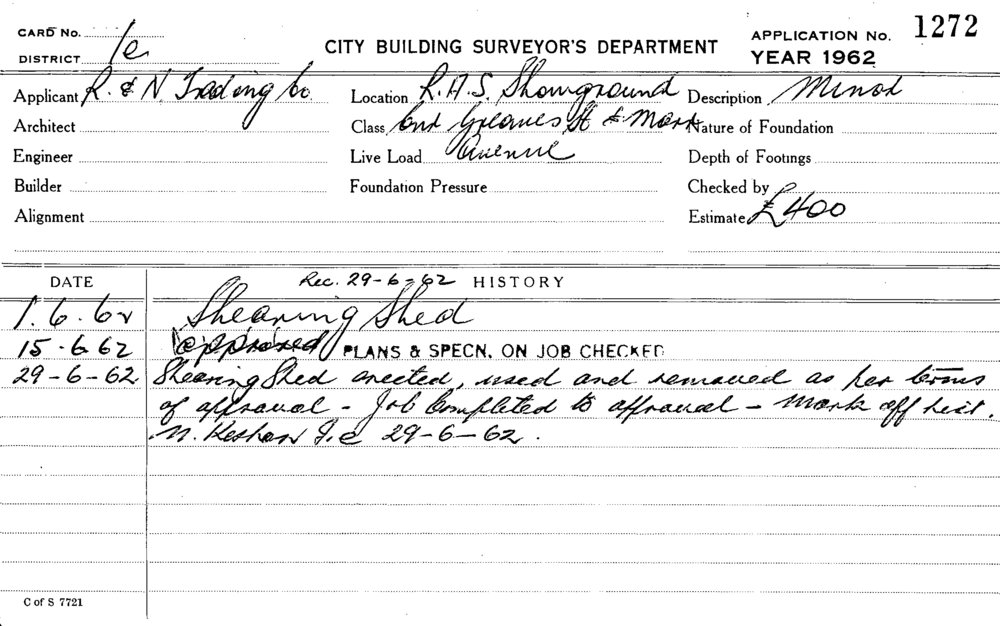 CARD No.
1e
DISTRICT
CITY BUILDING SURVEYOR'S DEPARTMENT
APPLICATION No. 1272
YEAR 1962
Applicant R. & N. Trading Co.
Location R.A.S. Showground
Description Minor
Architect
Class Cnr Greaves St & Mark
Nature of Foundation
Engineer
Live Load Avenue
Depth of Footings
Builder
Foundation Pressure
Checked by
Alignment
Estimate £400
DATE
Rec. 29-6-62 HISTORY
1.6.62 Shearing Shed
15.6.62 approved PLANS & SPECN. ON JOB CHECKED
29-6-62 Shearing Shed erected, used and removed as per terms
of approval - Job Completed to approval - Mark off list.
29-6-62.
C of S 7721